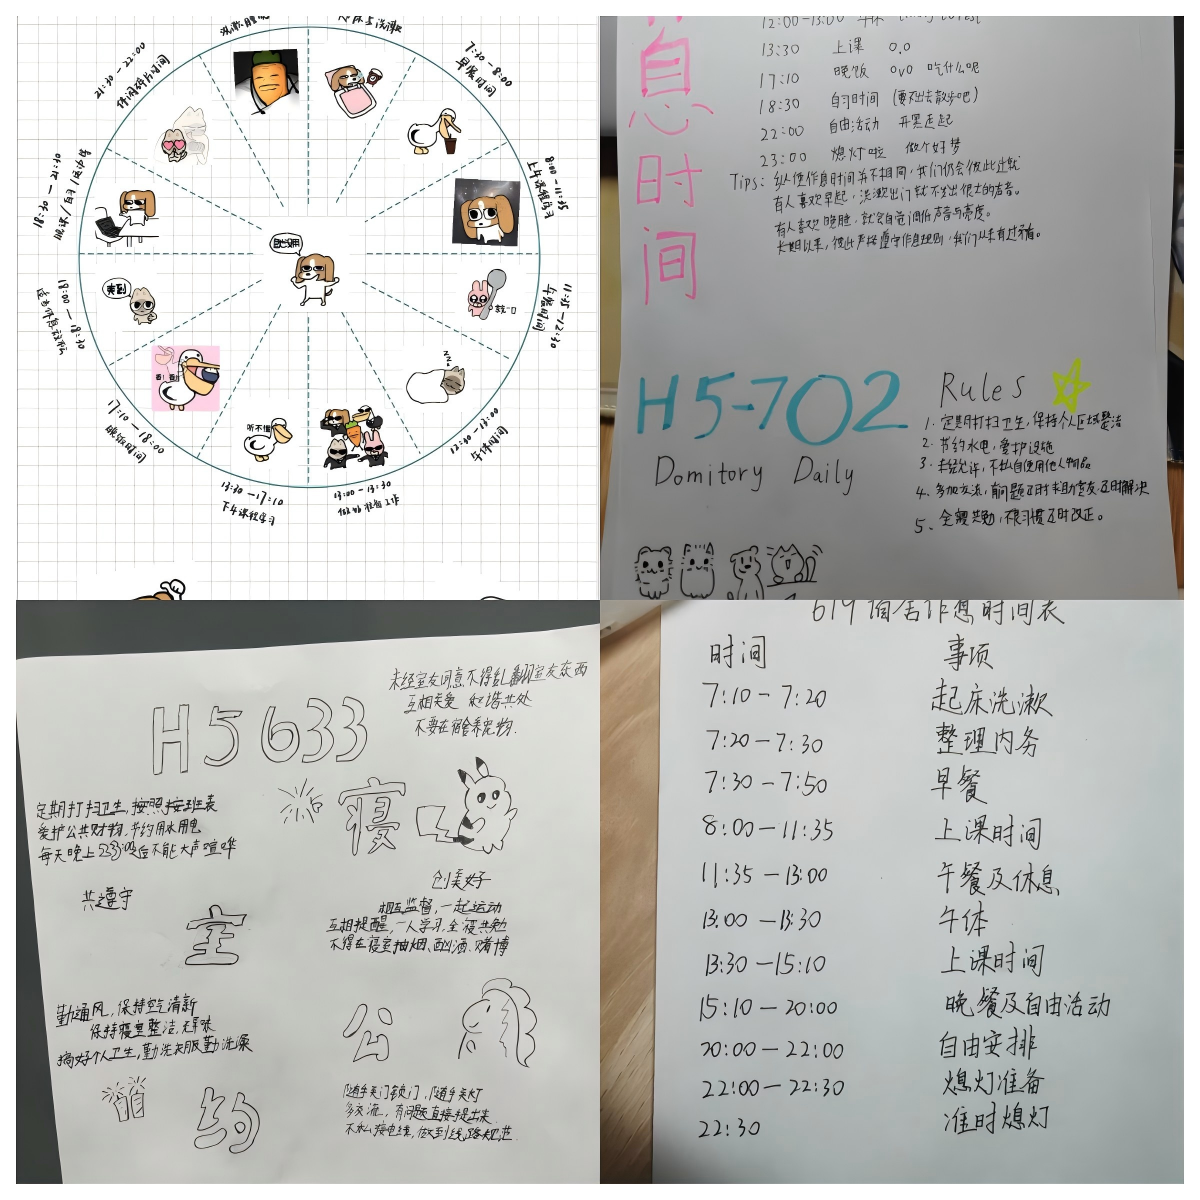 起床与洗漱
7:30-8:00
早餐时间
8:00-11:35
上午课程学习
11:35-12:30
午餐时间
12:30-13:00
午休时间
13:00-13:30
准备工作
13:30-17:10
下午课程学习
17:10-18:00
晚饭时间
18:00-18:30
18:30-21:30
晚课/自习/运动等
21:30-22:00
休闲碎片时间
来到
听不懂
香!香!
ZZZ
息时间
12:00-13:00 午休
13:30 上课 0.0
17:10 晚饭 0v0 吃什么呢
18:30 自习时间 (要不出去散步吧)
22:00 自由活动 开黑走起
23:00 熄灯啦 做个好梦
Tips: 纵使作息时间并不相同,我们仍会彼此迁就
有人喜欢早起,洗漱出门就不发出很大的声音。
有人喜欢晚睡,就会自觉调低声音与亮度。
长期以来,彼此严格遵守作息规则,我们从未有过矛盾。
H5-702
Domitory Daily
Rules
1. 定期打扫卫生,保持个人区域整洁
2. 节约水电,爱护设施
3. 未经允许,不私自使用他人物品
4. 多加交流,有问题及时求助室友,及时解决
5、全寝共勉,不良习惯及时改正。
H5633
未经室友同意,不得乱翻室友东西
互相关爱 和谐共处
不要在宿舍养宠物.
定期打扫卫生,按照值班表
爱护公共财物,节约用水用电
每天晚上23:00后不能大声喧哗
寝
共遵守
室
创美好
相互监督,一起运动
互相提醒,一人学习,全寝共勉
不得在寝室抽烟、酗酒、赌博
勤通风,保持空气清新
保持寝室整洁,无异味
搞好个人卫生,勤洗衣服勤洗澡
公
约
随手关门锁门,随手关灯
多交流,有问题直接提出来
不私接电线,做到线路规范
619宿舍作息时间表
时间 事项
7:10-7:20 起床洗漱
7:20-7:30 整理内务
7:30-7:50 早餐
8:00-11:35 上课时间
11:35-13:00 午餐及休息
13:00-13:30 午体
13:30-15:10 上课时间
15:10-20:00 晚餐及自由活动
20:00-22:00 自由安排
22:00-22:30 熄灯准备
22:30 准时熄灯